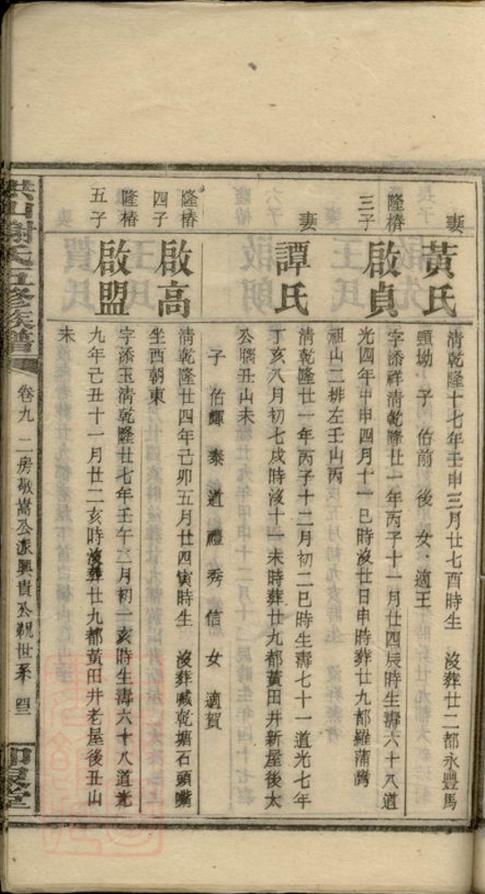 妻
黃氏
清乾隆十七年壬申三月廿七酉時生 沒葬廿二都永豐馬
頸坳 子 佑前 後 女 適王
隆椿
三子
啟貞
字添祥清乾隆廿一年丙子十一月廿四辰時生壽六十八道
光四年甲申四月十一巳時沒廿日申時葬廿九都羅蒲灣
祖山二排左壬山丙
妻
譚氏
清乾隆廿一年丙子十二月初二巳時生壽七十一道光七年
丁亥八月初七戌時沒十一未時葬廿九都黃田井新屋後太
公腦丑山未
子 佑輝 泰 道 禮 秀 信 女 適賀
隆椿
四子
啟高
清乾隆廿四年己卯五月廿四寅時生 沒葬喊乾塘石頭嘴
坐西朝東
隆椿
五子
啟盟
字添玉清乾隆廿七年壬午二月初二亥時生壽六十八道光
九年己丑十一月廿二亥時沒葬廿九都黃田井老屋後丑山
未
洪山謝氏五修族譜
卷九 二房敬嵩公派興貴公親世系